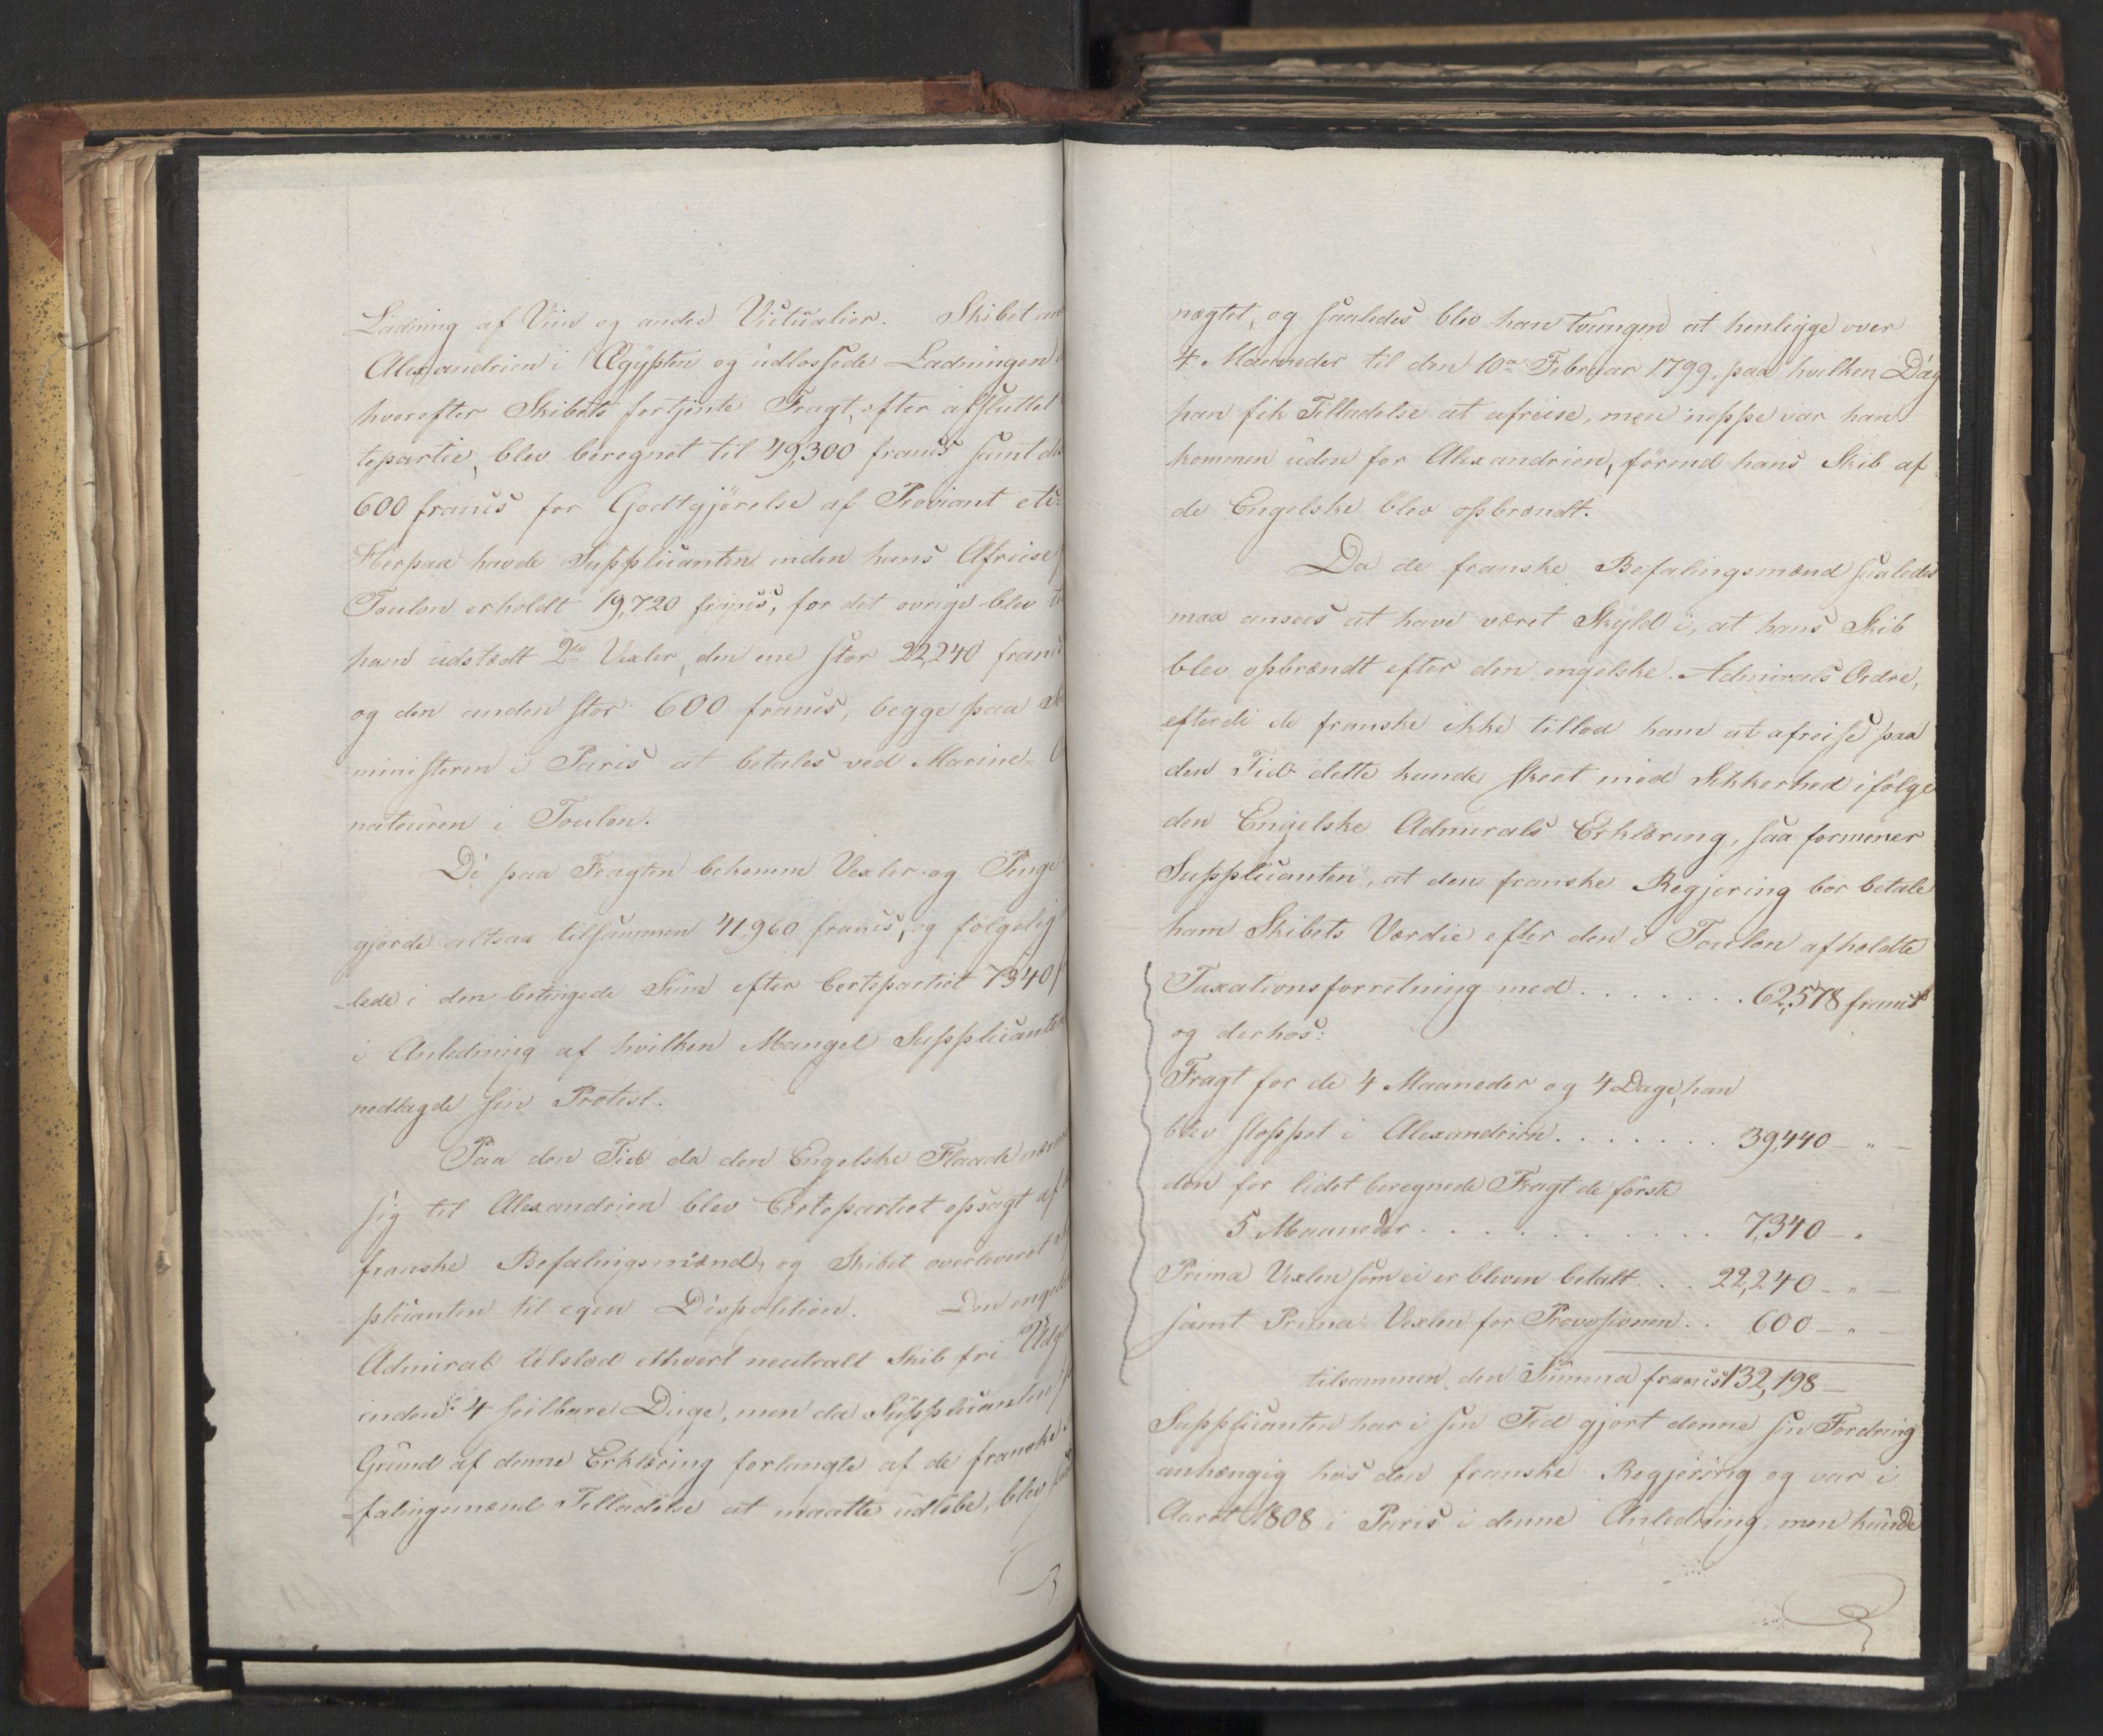 Ladning af Viin og andre Victualier. Skibet an
Alexandrien i Ægÿpten og udlossede Ladningen
hvorefter Skibets fortjente Fragt, efter afsluttet
tepartie, blev beregnet til 49,300 francs samt de
600 francs for Godtgjörelse af Proviant etc:
Herpaa havde Supplicanten inden hans Afreise
Toulon erholdt 19,720 francs, for det övrige blev
ham udstædt 2de Vexler, den ene stor 22,240 francs
og den anden stor 600 francs, begge paa
ministeren i Paris at betales ved Marine-
nateuren i Toulon.
De paa Fragten bekomne Vexler og Penge
gjorde altsaa tilsammen 41,960 francs, og fölgelig
lede i den betingede Sum efter Certepartiet 7340
i Anledning af hvilken Mangel Supplicanten
nedlagde sin Protest.
Paa den Tid da den Engelske Flaade nær
sig til Alexandrien blev Certepartiet opsagt af
franske Befalingsmænd, og Skibet overleveret
plicanten til egen Disposition. Den engel
Admiral tilstod ethvert neutralt Skib fri Udg
inden 4 seilbare Dage, men da Supplicanten
Grund af denne Erklæring forlangte af de franske
falingsmænd Tilladelse at maatte udlöbe, blev
nægtet, og saaledes blev han tvungen at henligge over
4 Maaneder til den 10de Februar 1799, paa hvilken Dag
han fik Tilladelse at afreise, men neppe var han
kommen uden for Alexandrien, förend hans Skib af
de Engelske blev opbrændt.
Da de franske Befalingsmænd saaledes
maa ansees at have været Skÿld i, at hans Skib
blev opbrændt efter den engelske Admirals Ordre,
efterdi de franske ikke tillod ham at afreise paa
den Tid dette kunde skeet med Sikkerhed ifölge
den Engelske Admirals Erklæring, saa formener
Supplicanten, at den franske Regjering bör betale
ham Skibets Værdie efter den i Toulon afholdte
Taxationsforretning med . . . . . . . 62,578 francs
og derhos:
Fragt for de 4 Maaneder og 4 Dage, han
blev stoppet i Alexandrien . . . . . . . 39,440 — " —
den for lidet beregnede Fragt de förste
5 Maaneder . . . . . . . . . . 7,340 — " —
Prima Vexlen som ei er bleven betalt . . . 22,240 — " —
samt Prima Vexlen for Provisionen . . 600 — " —
tilsammen den Summa francs 132,198 —
Supplicanten har i sin Tid gjort denne sin Fordring
anhængig hos den franske Regjering og var i
Aaret 1808 i Paris i denne Anledning, men kunde